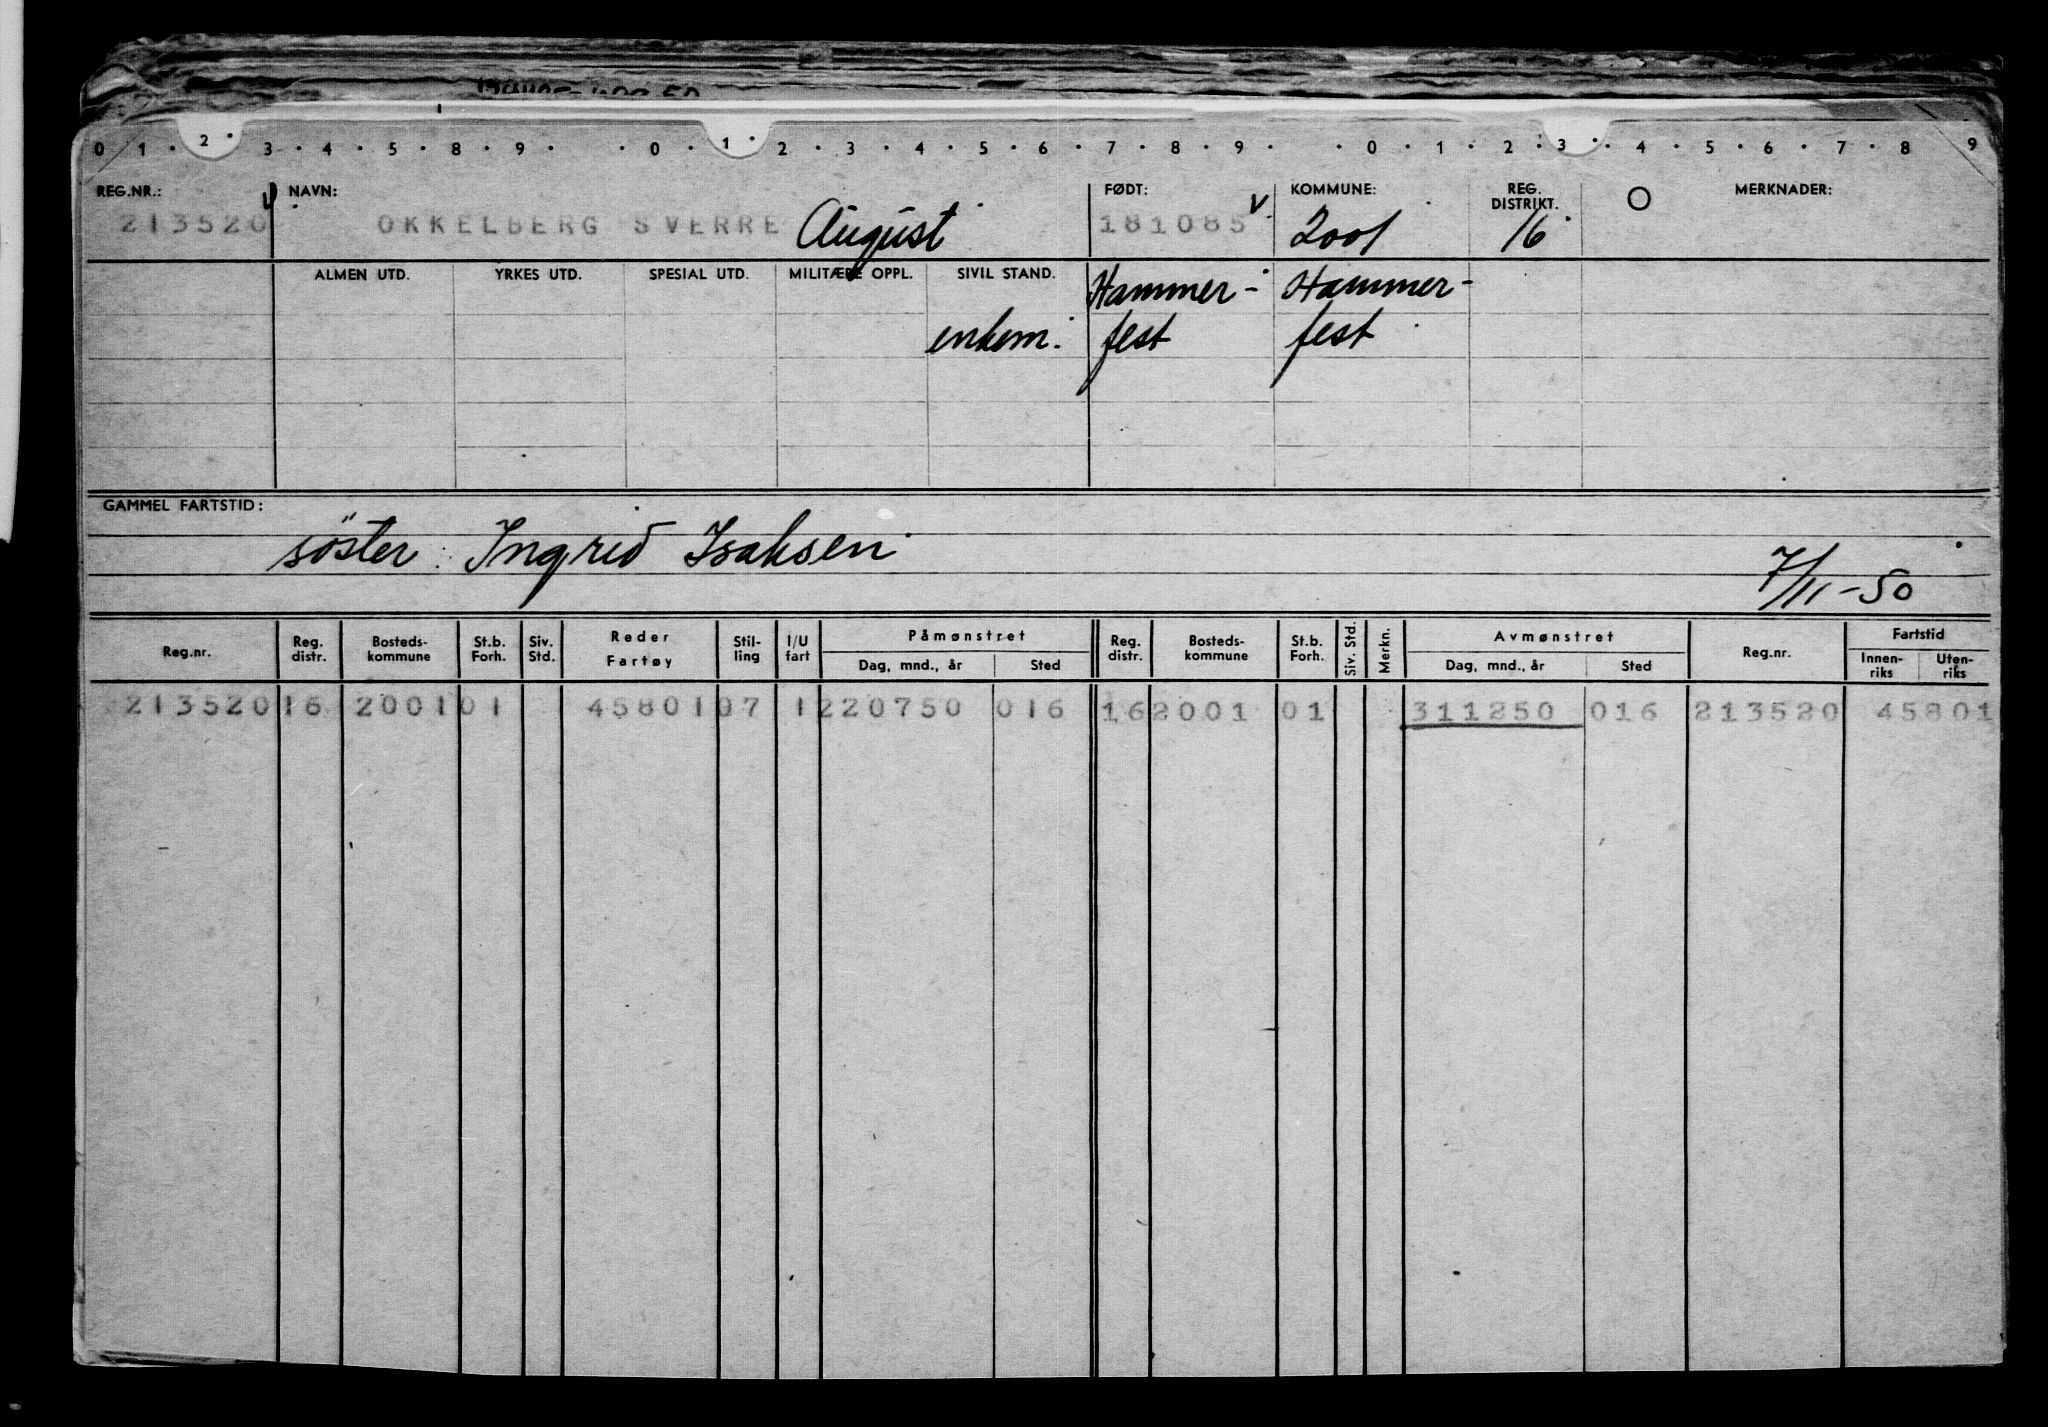 0 1 · 2 · 3 · 4 · 5 · 8 · 9 · · 0 · 1 · 2 · 3 · 4 · 5 · 6 · 7 · 8 · 9 · · 0 · 1 · 2 · 3 · 4 · 5 · 6 · 7 · 8 9
REG.NR.: NAVN: FØDT: KOMMUNE: REG. DISTRIKT. MERKNADER:
213520 OKKELBERG SVERRE August 181085 2001 16
ALMEN UTD. YRKES UTD. SPESIAL UTD. MILITÆRE OPPL. SIVIL STAND. Hammer- Hammer-
enkem. fest fest
GAMMEL FARTSTID:
söster: Ingrid Isaksen 7/11-50
Reg.nr. Reg. distr. Bosteds- kommune St.b. Forh. Siv. Std. Reder Fartøy Stil- ling I/U fart Påmønstret Dag, mnd., år Sted Reg. distr. Bosteds- kommune St.b. Forh. Siv. Std. Merkn. Avmønstret Dag, mnd., år Sted Reg.nr. Fartstid Innen- riks Uten- riks
213520 16 2001 01 45801 97 1 220750 016 16 2001 01 311250 016 213520 45801